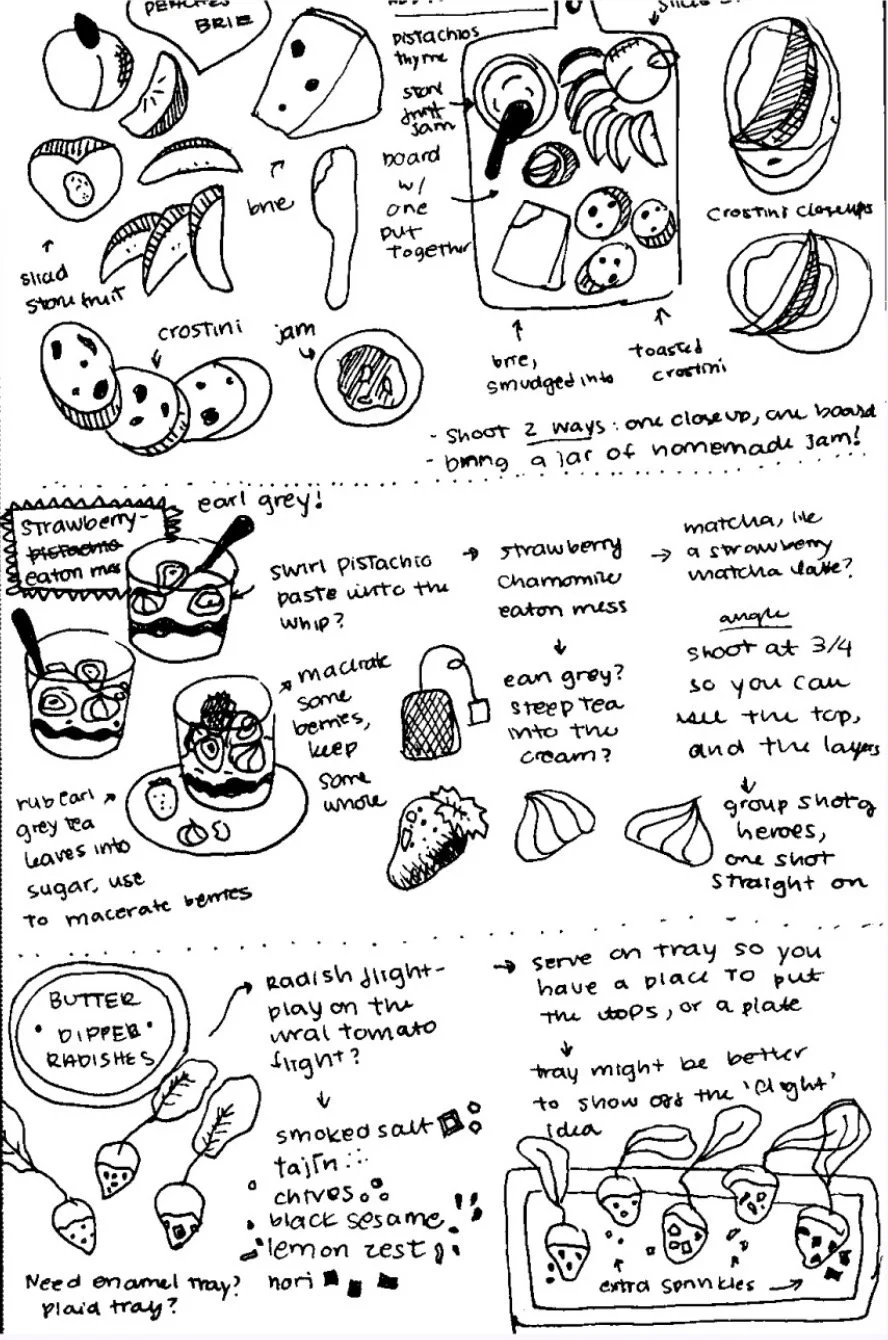 PEACHES
BRIE
pistachios
thyme
stone
fruit
jam
board
w/
one
put
together
brie
sliced
stone fruit
crostini
jam
crostini closeups
brie,
smudged into
toasted
crostini
- shoot 2 ways: one closeup, one board
- bring a jar of homemade jam!
strawberry-
pistachio
eaton mess
earl grey!
swirl pistachio
paste into the
whip?
→ strawberry
chamomile
eaton mess
→ matcha, like
a strawberry
matcha latte?
earl grey?
steep tea
into the
cream?
angle
shoot at 3/4
so you can
see the top,
and the layers
group shot of
heroes,
one shot
straight on
macerate
some
berries,
keep
some
whole
rub earl
grey tea
leaves into
sugar, use
to macerate berries
BUTTER
• DIPPED •
RADISHES
Radish flight-
play on the
viral tomato
flight?
smoked salt
tajín
chives
black sesame
lemon zest
nori
→ serve on tray so you
have a place to put
the tops, or a plate
tray might be better
to show off the 'flight'
idea
extra sprinkles →
Need enamel tray?
plaid tray?